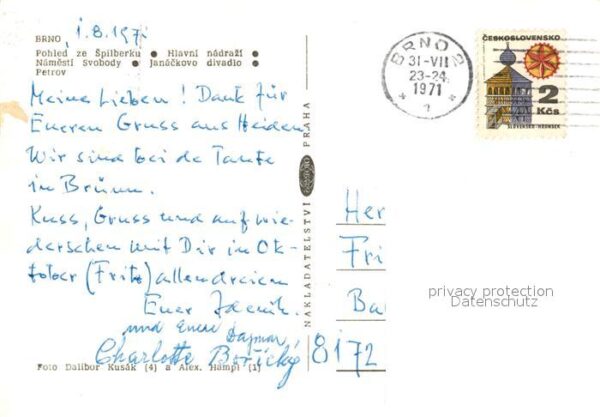 BRNO, 1.8.197
Pohled ze Špilberku • Hlavní nádraží •
Náměstí Svobody • Janáčkovo divadlo •
Petrov
Meine Lieben! Dank für
Eueren Gruss aus Heiden.
Wir sind bei de Tante
in Brünn.
Kuss, Gruss und auf wie-
dersehen mit Dir in Ok-
tober (Fritz) allen dreien
Euer Zdeník.
und Euere Dagmar,
Charlotte Bořický
Foto Dalibor Kusák (4) a Alex. Hampl (1)
NAKLADATELSTVÍ PRAHA
BRNO 2
31-VII
23-24
1971
ČESKOSLOVENSKO
2
Kčs
SLOVENSKO-HRONSEK
Her
Fri
Ba
8172
privacy protection
Datenschutz